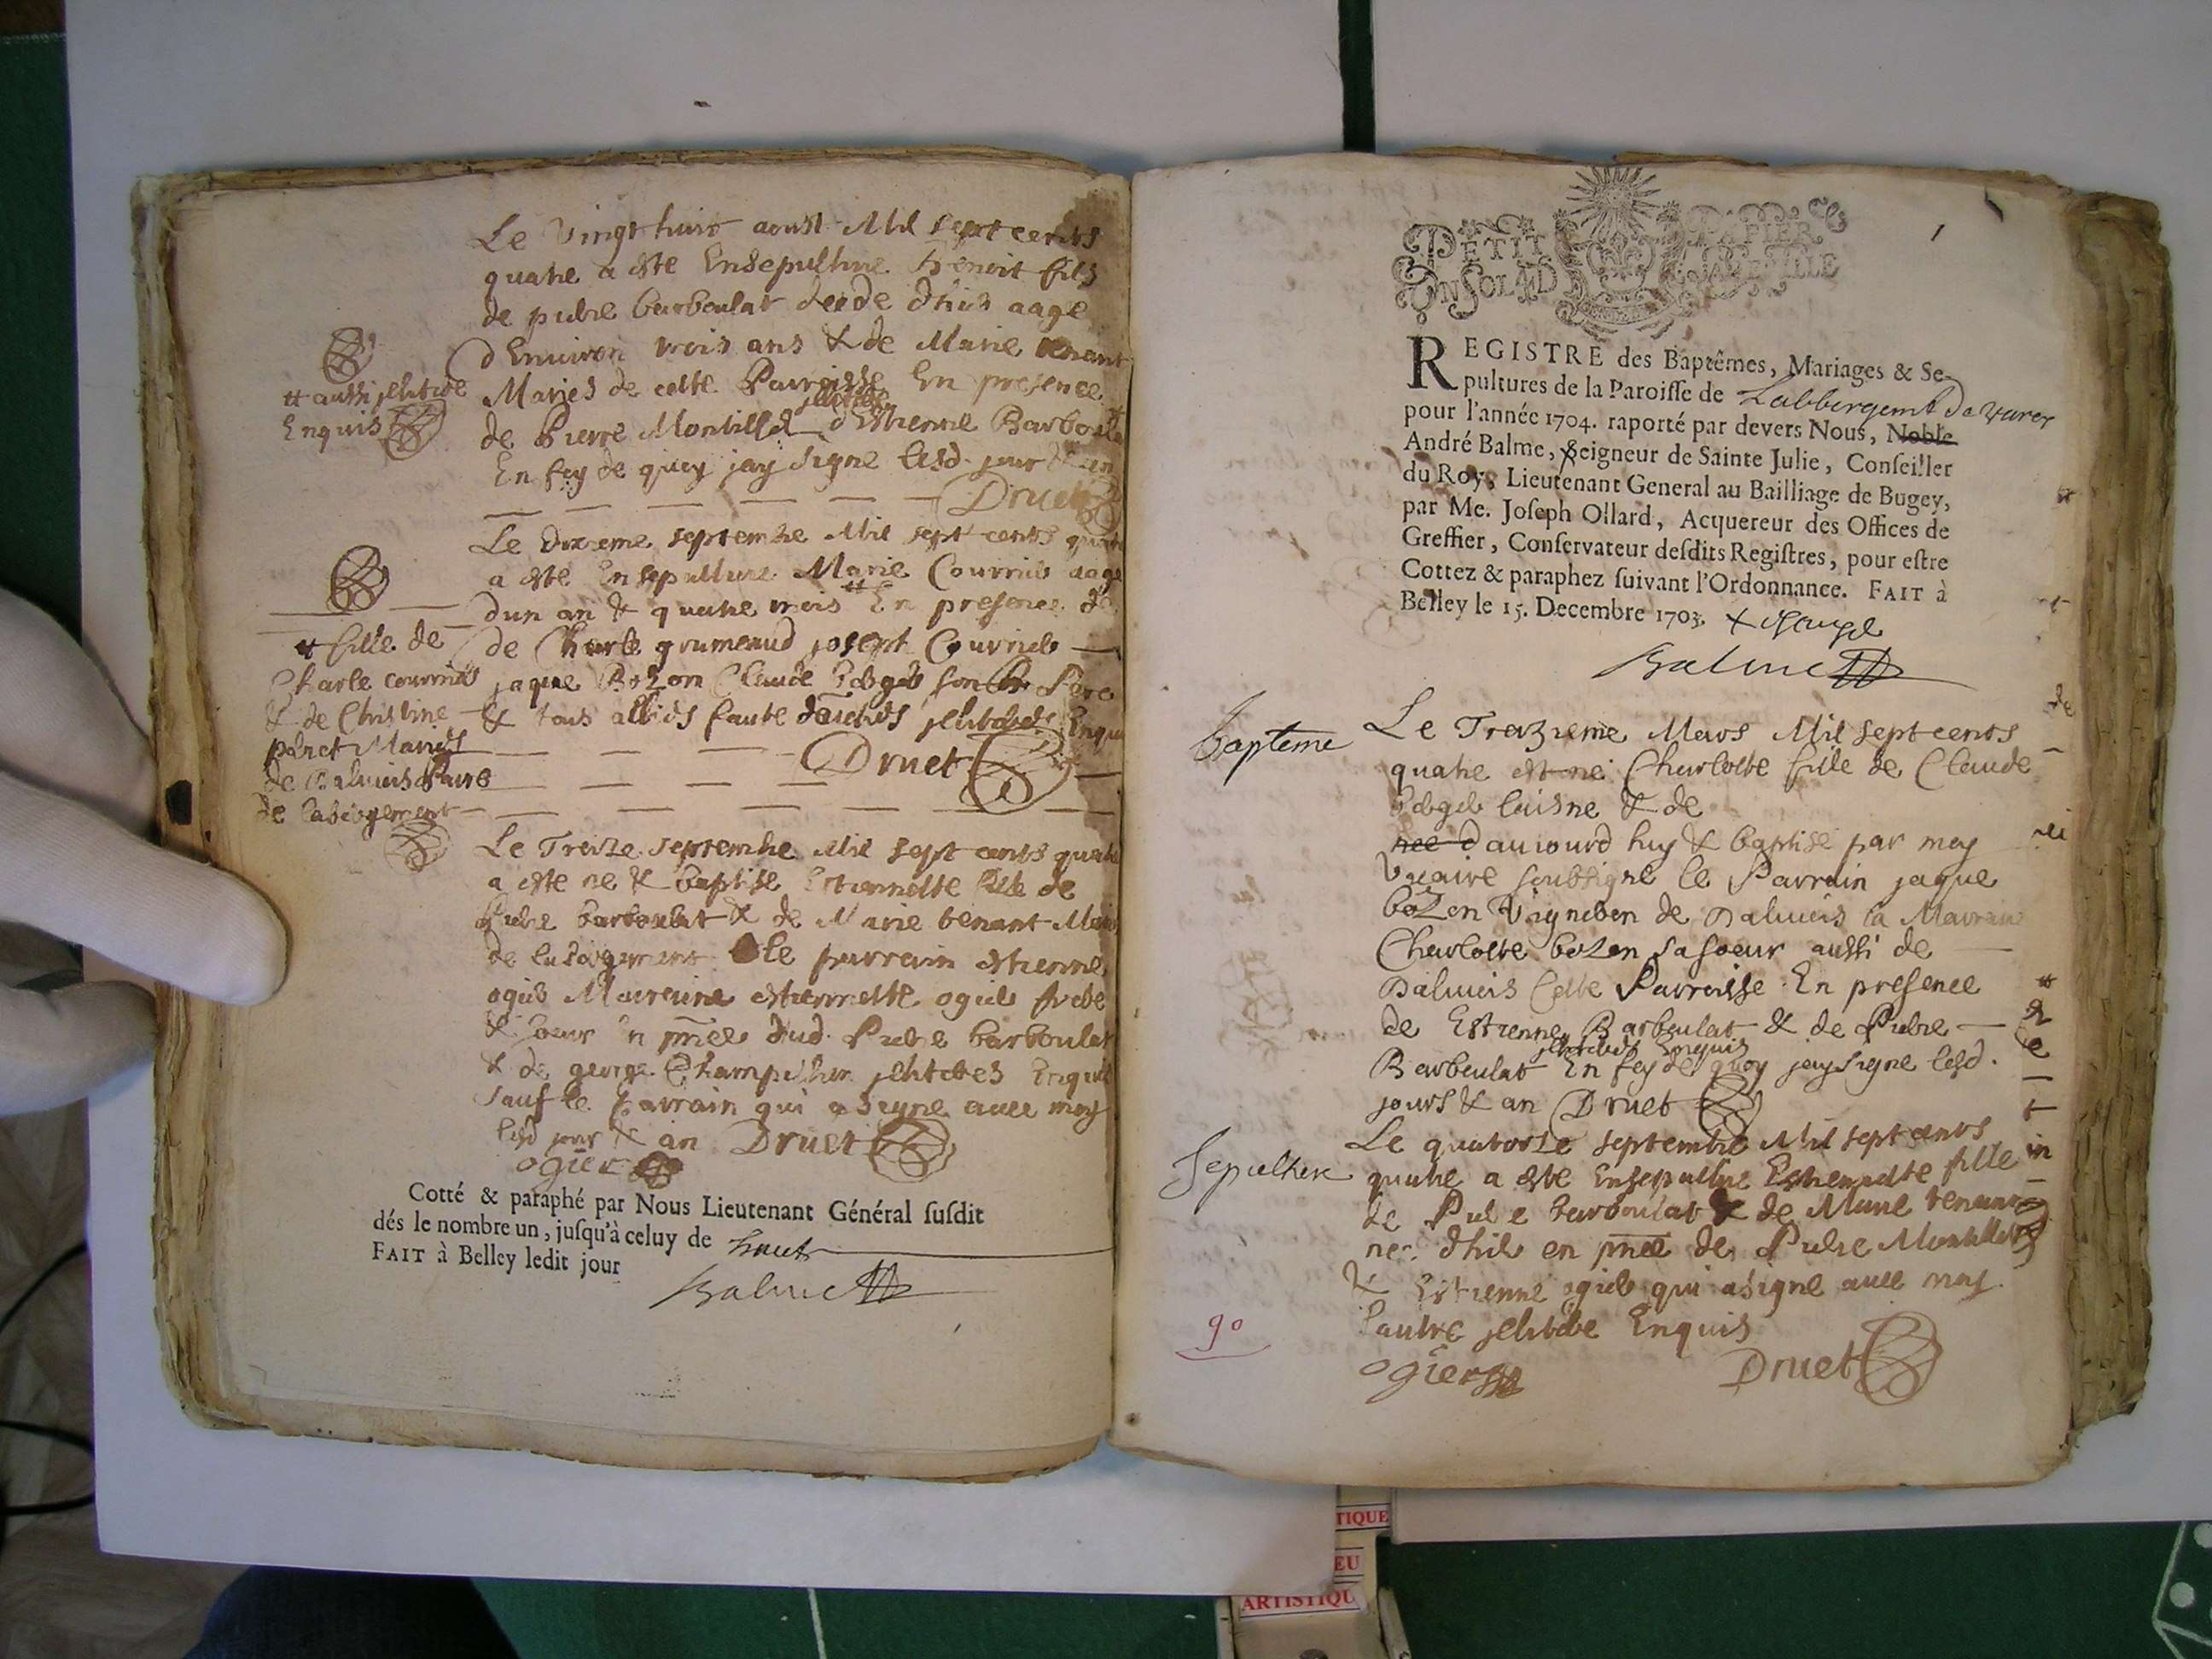 Le Vingt huit aoust Mil sept cents
quatre a este Ensepulture Benoit fils
de pierre barboulat decede d'hier aage
d'Enuiron trois ans & de Marie tenant
Maries de cette Parroisse En presence
de Pierre Montillet illiteré d'Estienne Barboula
En foy de quoy jay signe lesd. jour & an
Druet
++ aussi illiteré
Enquis
Le Dixieme septembre Mil sept cents quatre
a este Ensepulture Marie Courrier aage
dun an & quatre mois ++ En presence de
de Charle grumeaud joseph Courrier
jaque Bozon Claude son Pere
& tous illiterés Enquis
Druet
++ fille de
Charle courrier
& de Christine
peret Mariés
de Parre
de labergement
Le Treize septembre Mil sept cents quatre
a este ne & baptise Estiennette fille de
Pierre barboulat & de Marie tenant Mariés
de labergement le parrain estienne
ogier Maraine estiennette ogier frere
& soeur En pnce dud. Pierre barboulat
& de george illiteres Enquis
sauf le Parrain qui a signe auec moy
lesd jour & an Druet
ogier
Cotté & paraphé par Nous Lieutenant Général susdit
dés le nombre un, jusqu'à celuy de huit
FAIT à Belley ledit jour
Balme
1
PETIT PAPIER
UN SOL LA DEVILLE
REGISTRE des Baptêmes, Mariages & Se-
pultures de la Paroisse de Labbergement de varey
pour l'année 1704. raporté par devers Nous, Noble
André Balme, Seigneur de Sainte Julie, Conseiller
du Roy, Lieutenant General au Bailliage de Bugey,
par Me. Joseph Ollard, Acquereur des Offices de
Greffier, Conservateur desdits Registres, pour estre
Cottez & paraphez suivant l'Ordonnance. FAIT à
Belley le 15. Decembre 1703.
Balme
bapteme
Le Trezieme Mars Mil sept cents
quatre est né Charlotte fille de Claude
laisne & de
nee d'auiourd huy & baptise par moy
Vicaire soubsigne le Parrain jaque
bozon Vigneron de la Maraine
Charlotte bozon sa soeur aussi de
cette Parroisse En presence
de Estienne Barboulat & de Pierre
illiterés Enquis
Barboulat En foy de quoy jay signe lesd.
jours & an Druet
Sepulture
Le quatorze septembre Mil sept cents
quatre a este Ensepulture Estiennette fille
de Pierre barboulat & de Marie tenant
nee d'hier en pnce de Pierre Montillet
& Estienne ogier qui a signe auec moy
lautre illiteré Enquis
ogier Druet
90
TIQUE
EU
ARTISTIQU